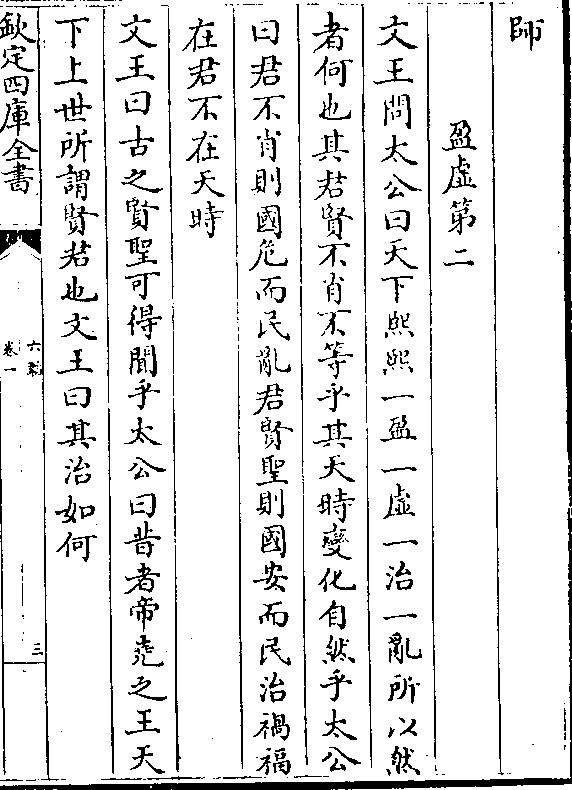 師
盈虛第二
文王問太公曰天下熙熙一盈一虛一治一亂所以然
者何也其君賢不肖不等乎其天時變化自然乎太公
曰君不肖則國危而民亂君賢聖則國安而民治禍福
在君不在天時
文王曰古之賢聖可得聞乎太公曰昔者帝堯之王天
下上世所謂賢君也文王曰其治如何
欽定四庫全書
六韜
卷一
三